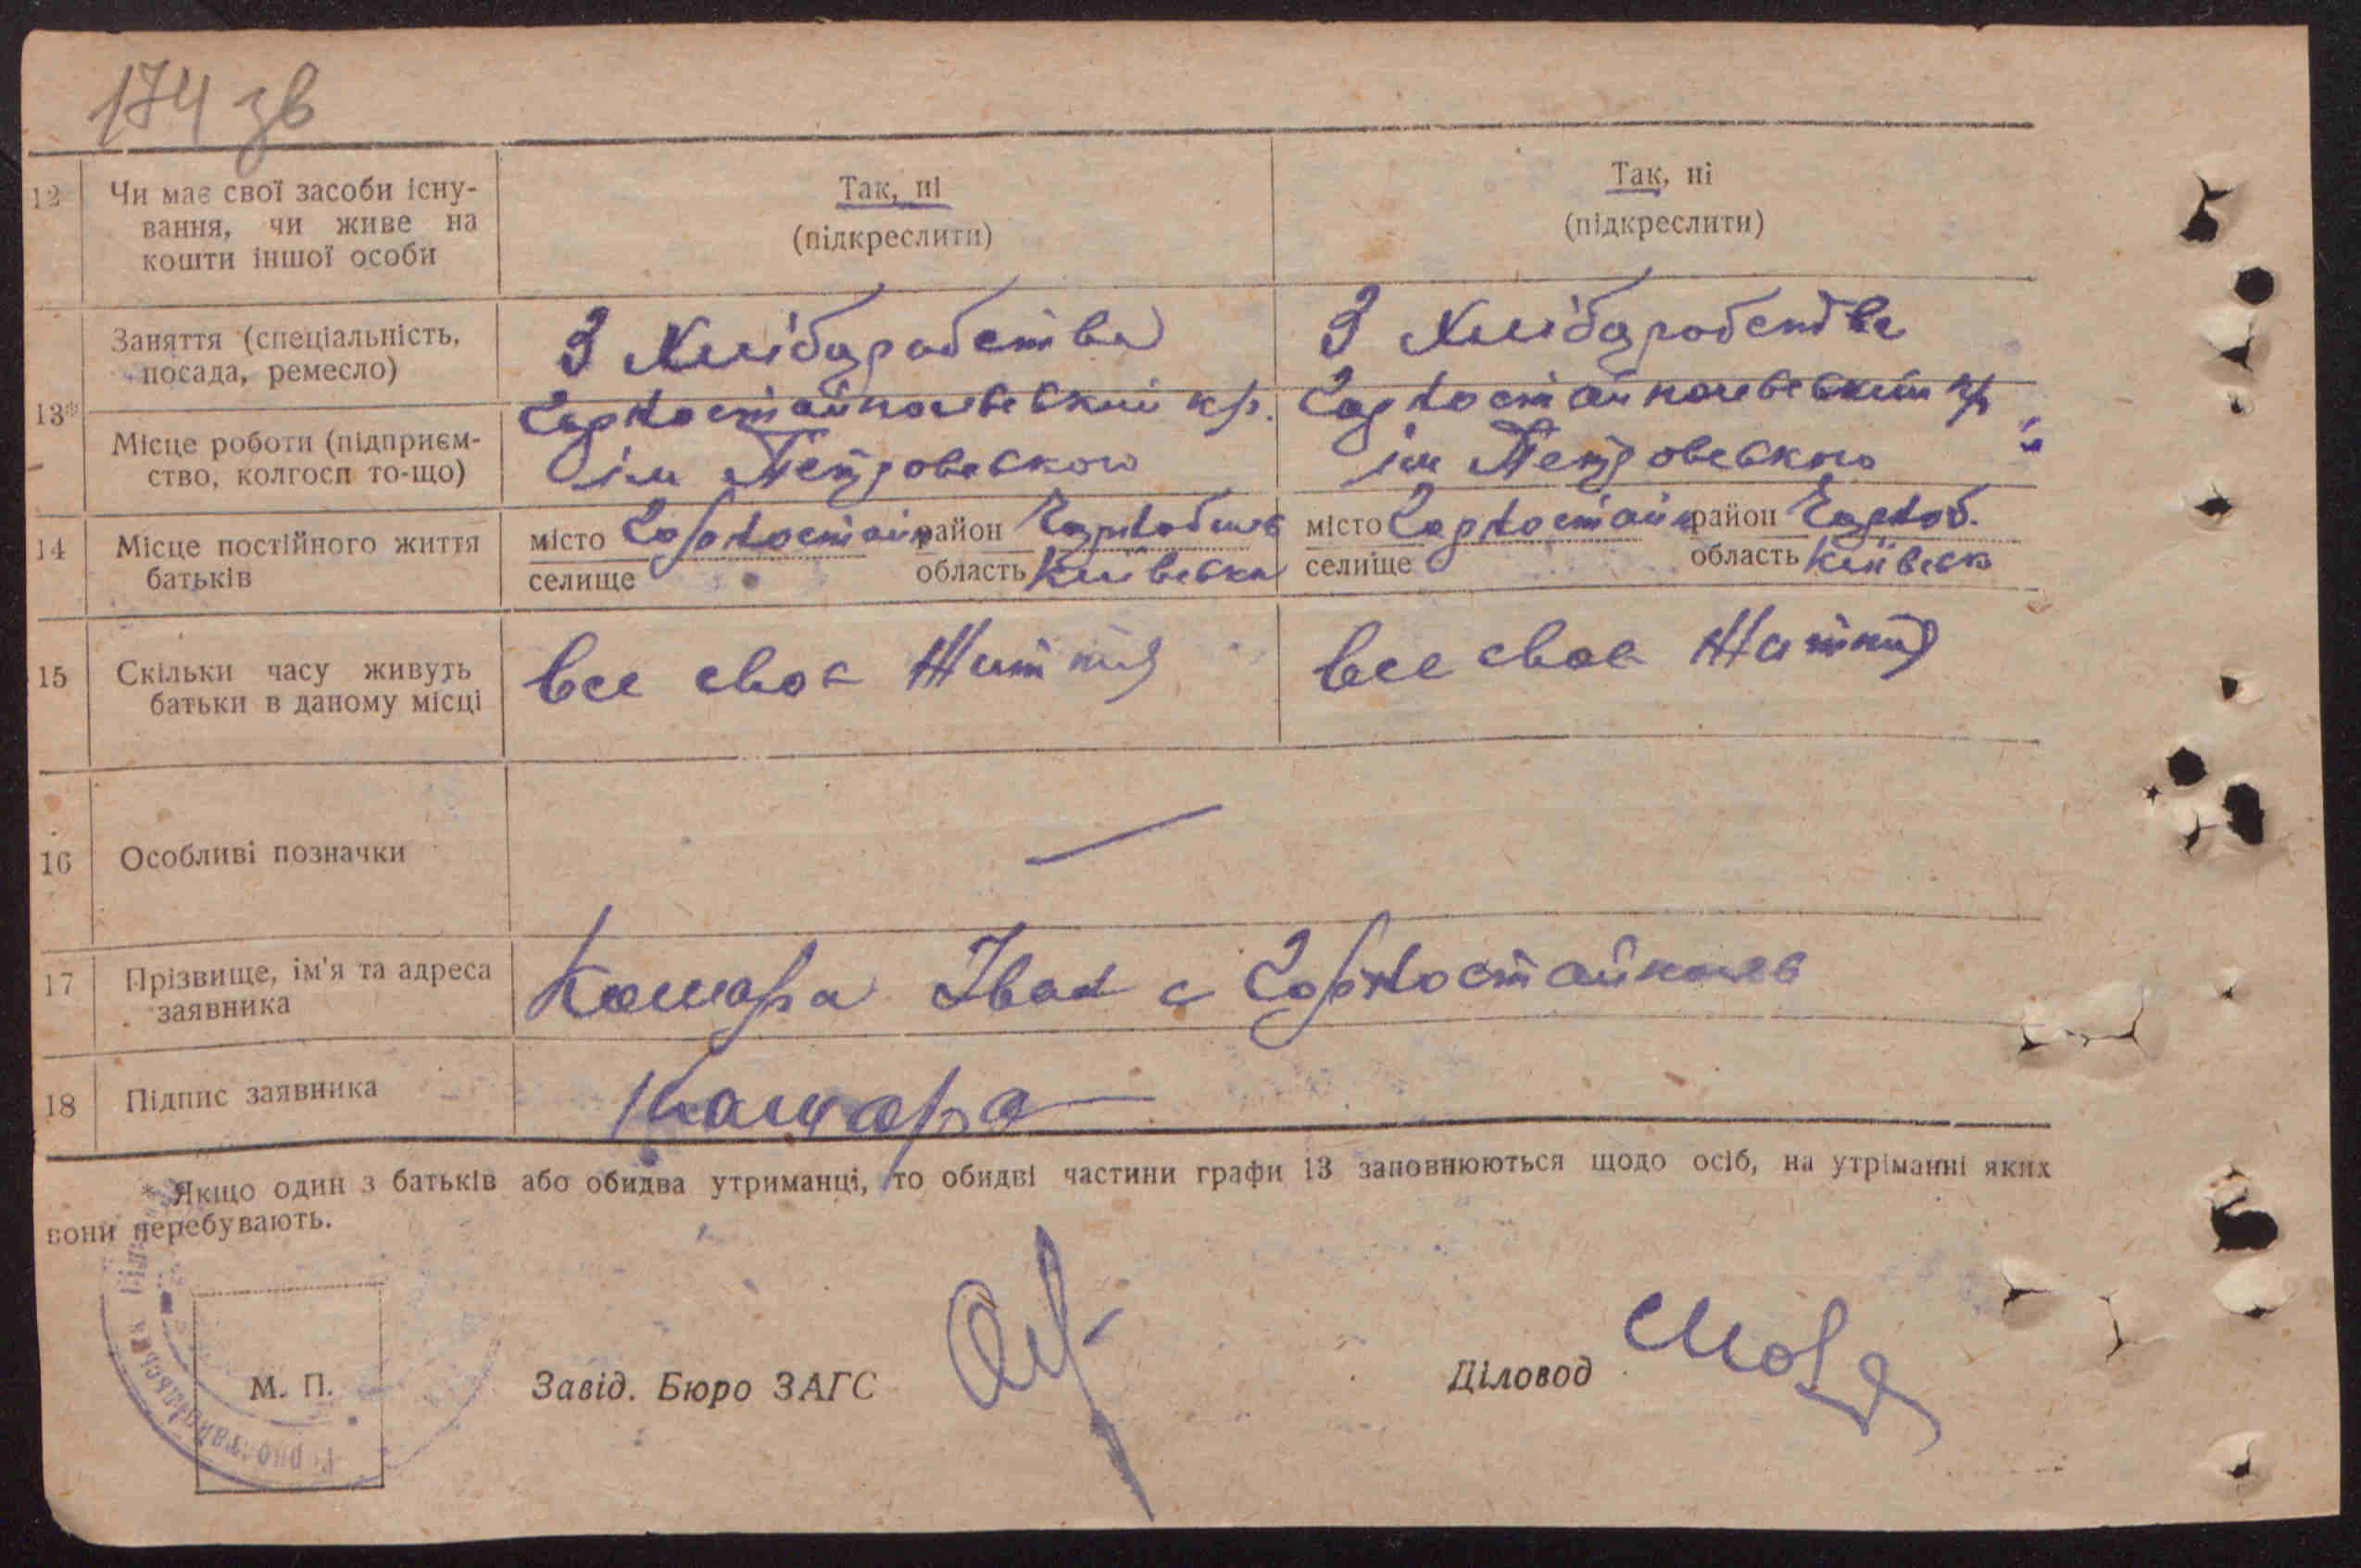 174 зв
12 Чи має свої засоби існу-
вання, чи живе на
кошти іншої особи
Так, ні
(підкреслити)
Так, ні
(підкреслити)
13*
Заняття (спеціальність,
посада, ремесло)
З Хлібаробства
З Хлібаробства
Місце роботи (підприєм-
ство, колгосп то-що)
Горностайполевський к/р.
ім Петровського
ім Петровського
14 Місце постійного життя
батьків
місто Горностайп район
селище область Київська
місто Горностайп район Горноб.
селище область Київськ
15 Скільки часу живуть
батьки в даному місці
все своє Життя
все своє Життя
16 Особливі позначки —
17 Прізвище, ім'я та адреса
заявника
Іван с Горностайполь
18 Підпис заявника
* Якщо один з батьків або обидва утриманці, то обидві частини графи 13 заповнюються щодо осіб, на утриманні яких
вони перебувають.
М. П.
Завід. Бюро ЗАГС
Діловод